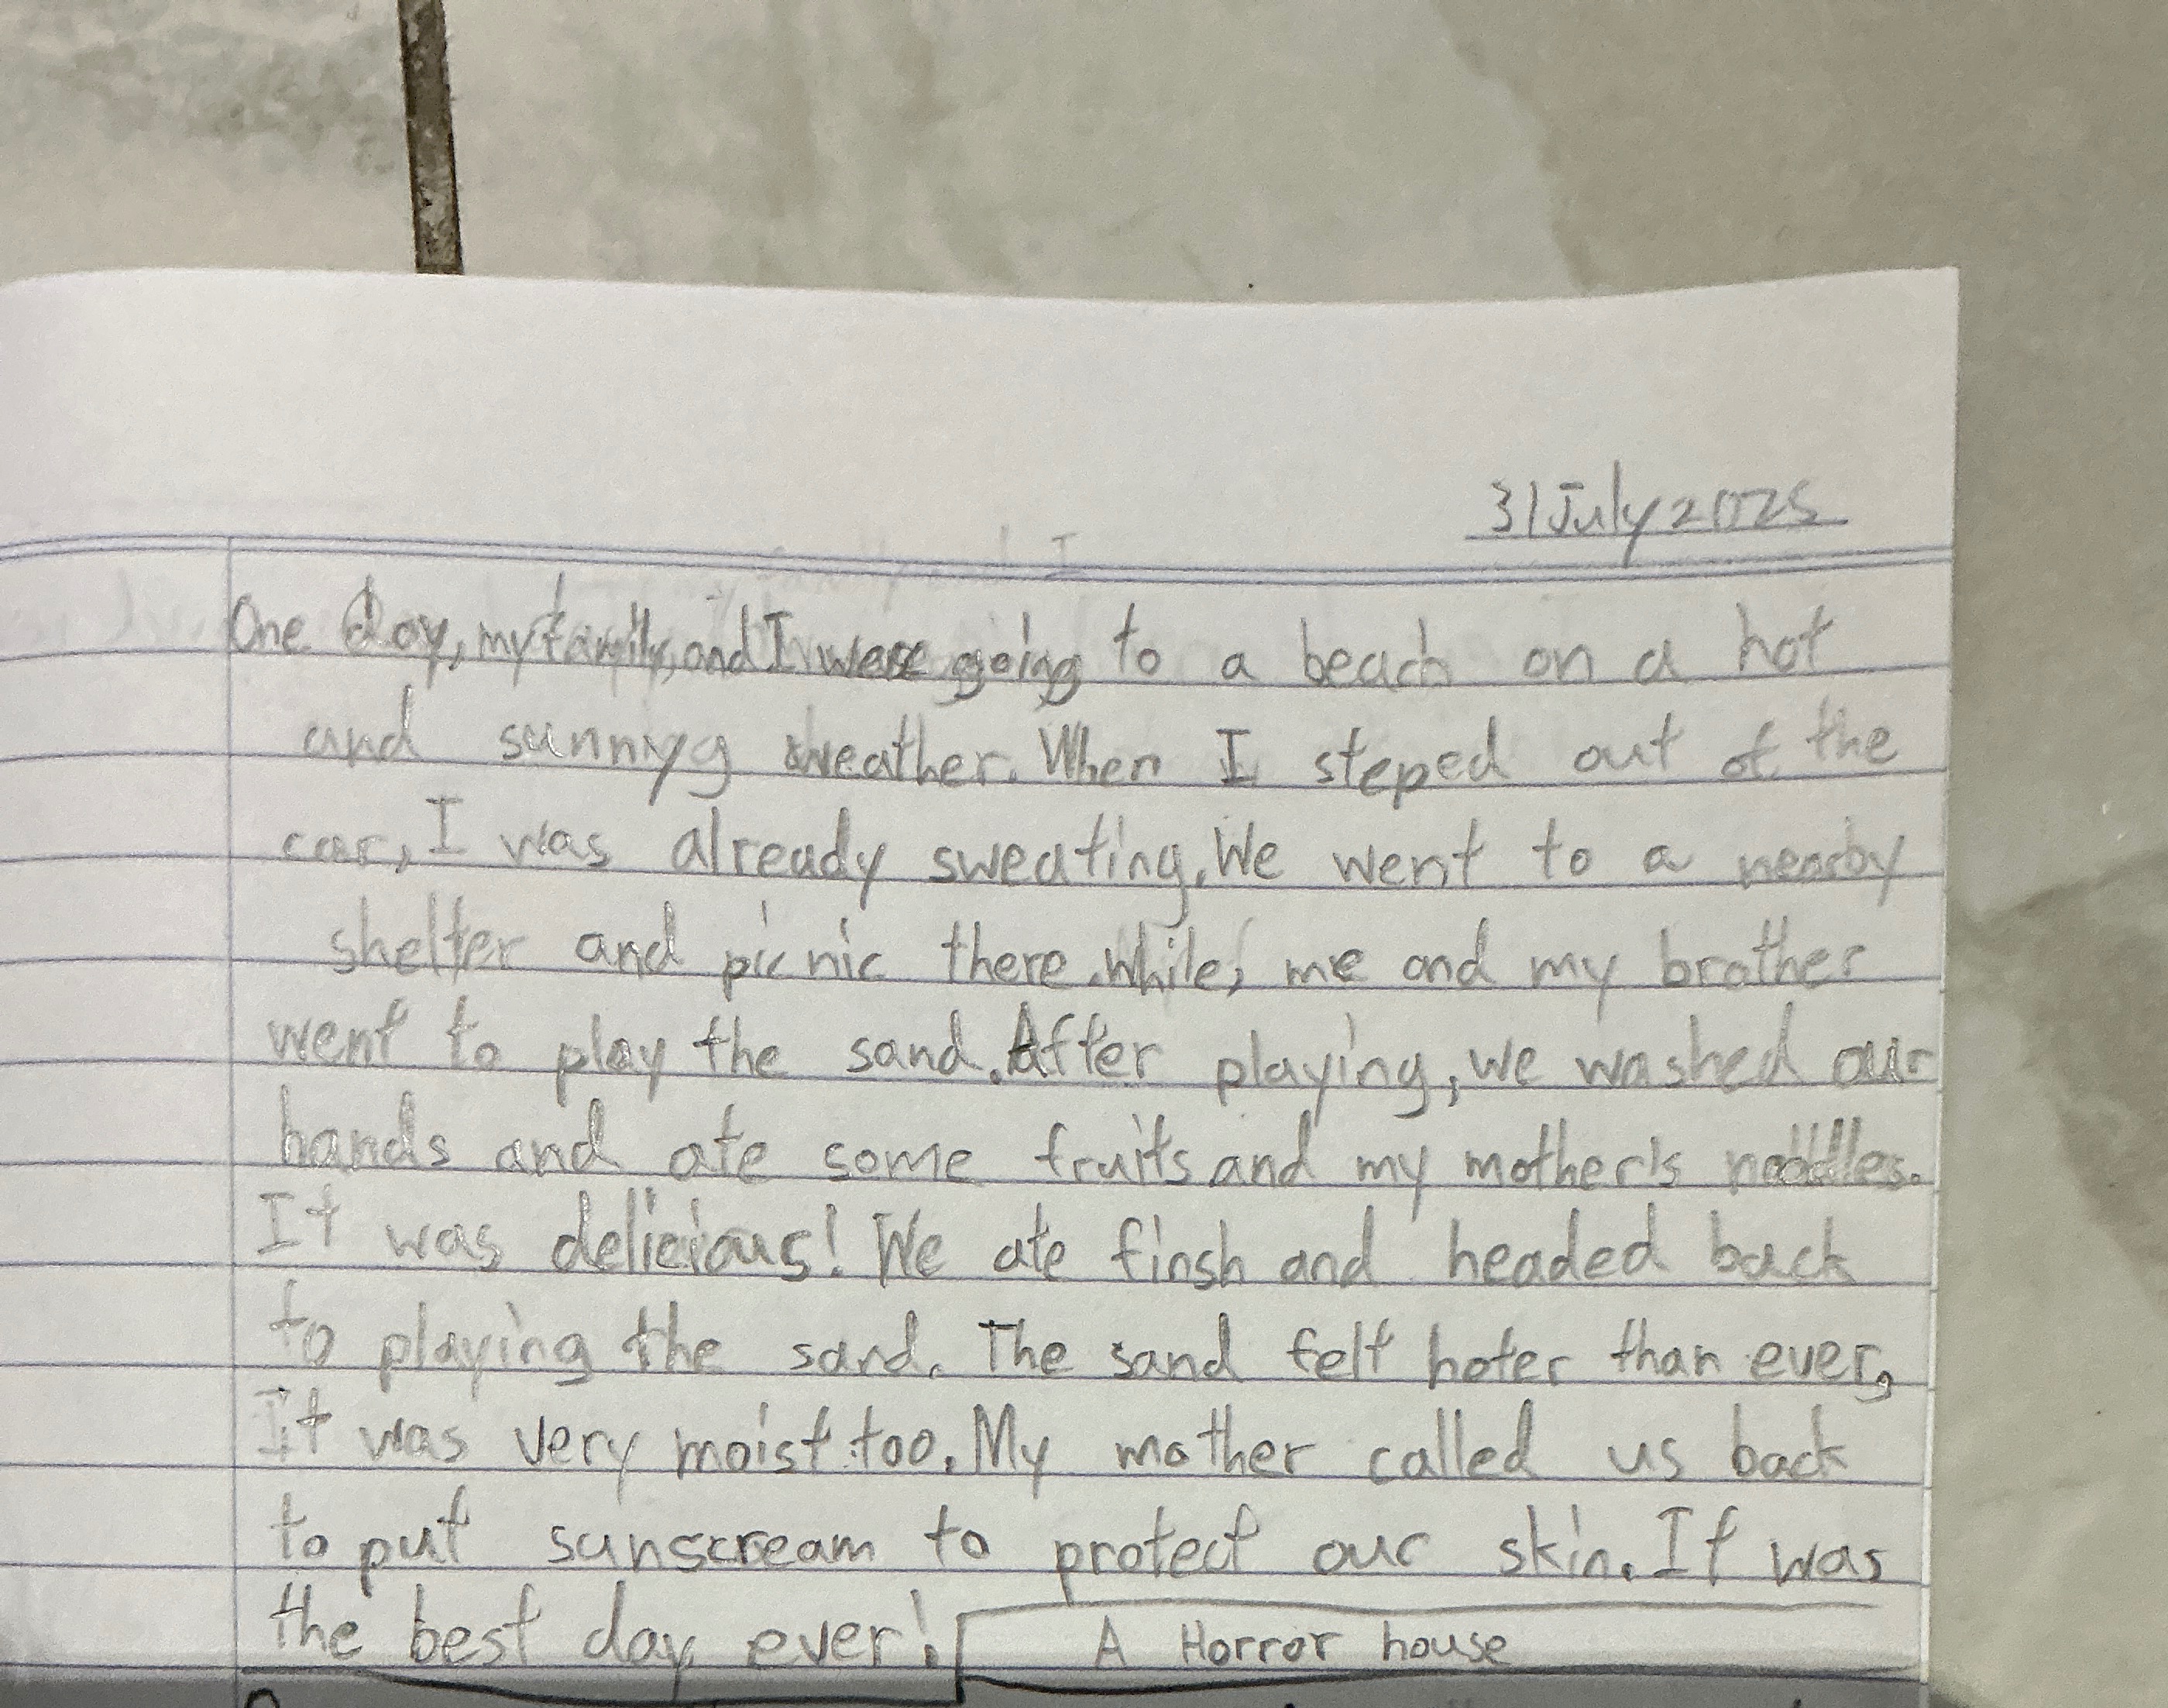 31 July 2025
One day, my family, and I were going to a beach on a hot
and sunnyg weather. When I steped out of the
car, I was already sweating. We went to a nearby
shelter and picnic there. while, me and my brother
went to play the sand. After playing, we washed our
hands and ate some fruits and my mother's noodles.
It was delicious! We ate finsh and headed back
to playing the sand. The sand felt hoter than ever,
It was very moist too. My mother called us back
to put sunscream to protect our skin. It was
the best day ever!
A Horror house